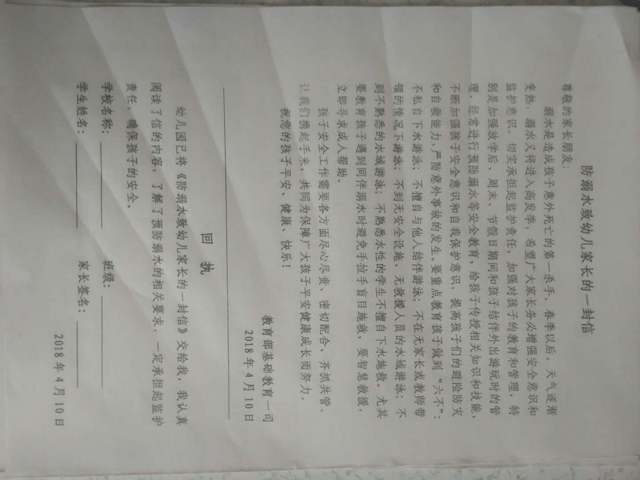 防溺水致幼儿家长的一封信
尊敬的家长朋友：
溺水是造成孩子意外死亡的第一杀手。春季以后，天气逐渐
变热，溺水又将进入高发季，希望广大家长务必增强安全意识和
监护意识，切实承担起监护责任，加强对孩子的教育和管理，特
别是加强放学后、周末、节假日期间和孩子结伴外出游玩时的管
理，经常进行预防溺水等安全教育，给孩子传授相关知识和技能，
不断加强孩子安全意识和自我保护意识，提高孩子们的避险防灾
和自救能力，严防意外事故的发生。要重点教育孩子做到“六不”：
不私自下水游泳；不擅自与他人结伴游泳；不在无家长或教师带
领的情况下游泳；不到无安全设施、无救援人员的水域游泳；不
到不熟悉的水域游泳；不熟悉水性的学生不擅自下水施救。尤其
要教育孩子遇到同伴溺水时避免手拉手盲目施救，要智慧救援，
立即寻求成人帮助。
孩子安全工作需要各方面尽心尽责、密切配合、齐抓共管。
让我们携起手来，共同为保障广大孩子平安健康成长而努力。
祝您的孩子平安、健康、快乐！
教育部基础教育一司
2018年4月10日
回 执
幼儿园已将《防溺水致幼儿家长的一封信》交给我，我认真
阅读了信的内容，了解了预防溺水的相关要求，一定承担起监护
责任，确保孩子的安全。
学校名称： 班级：
学生姓名： 家长签名：
2018年4月10日